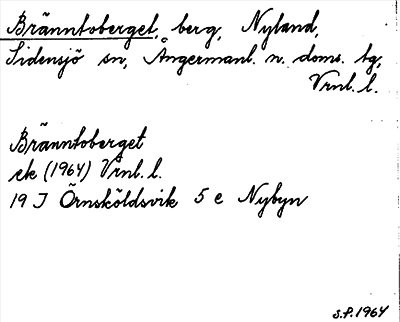 Bränntoberget, berg, Nyland,
Sidensjö sn, Ångermanl. n. doms. tg,
Vrnl. l.
Bränntoberget
ek (1964) Vrnl. l.
19 J Örnsköldsvik 5 e Nybyn
S.P. 1964